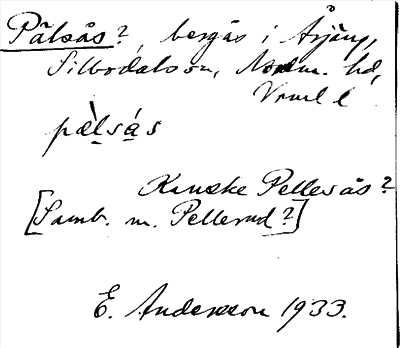 Pälsås?, bergås i Årjäng,
Silbodals sn, Nordm. hd,
Vrml l
pæ̀lsás
Kanske Pellesås?
[Samb. m. Pellerud?]
E. Andersson 1933.